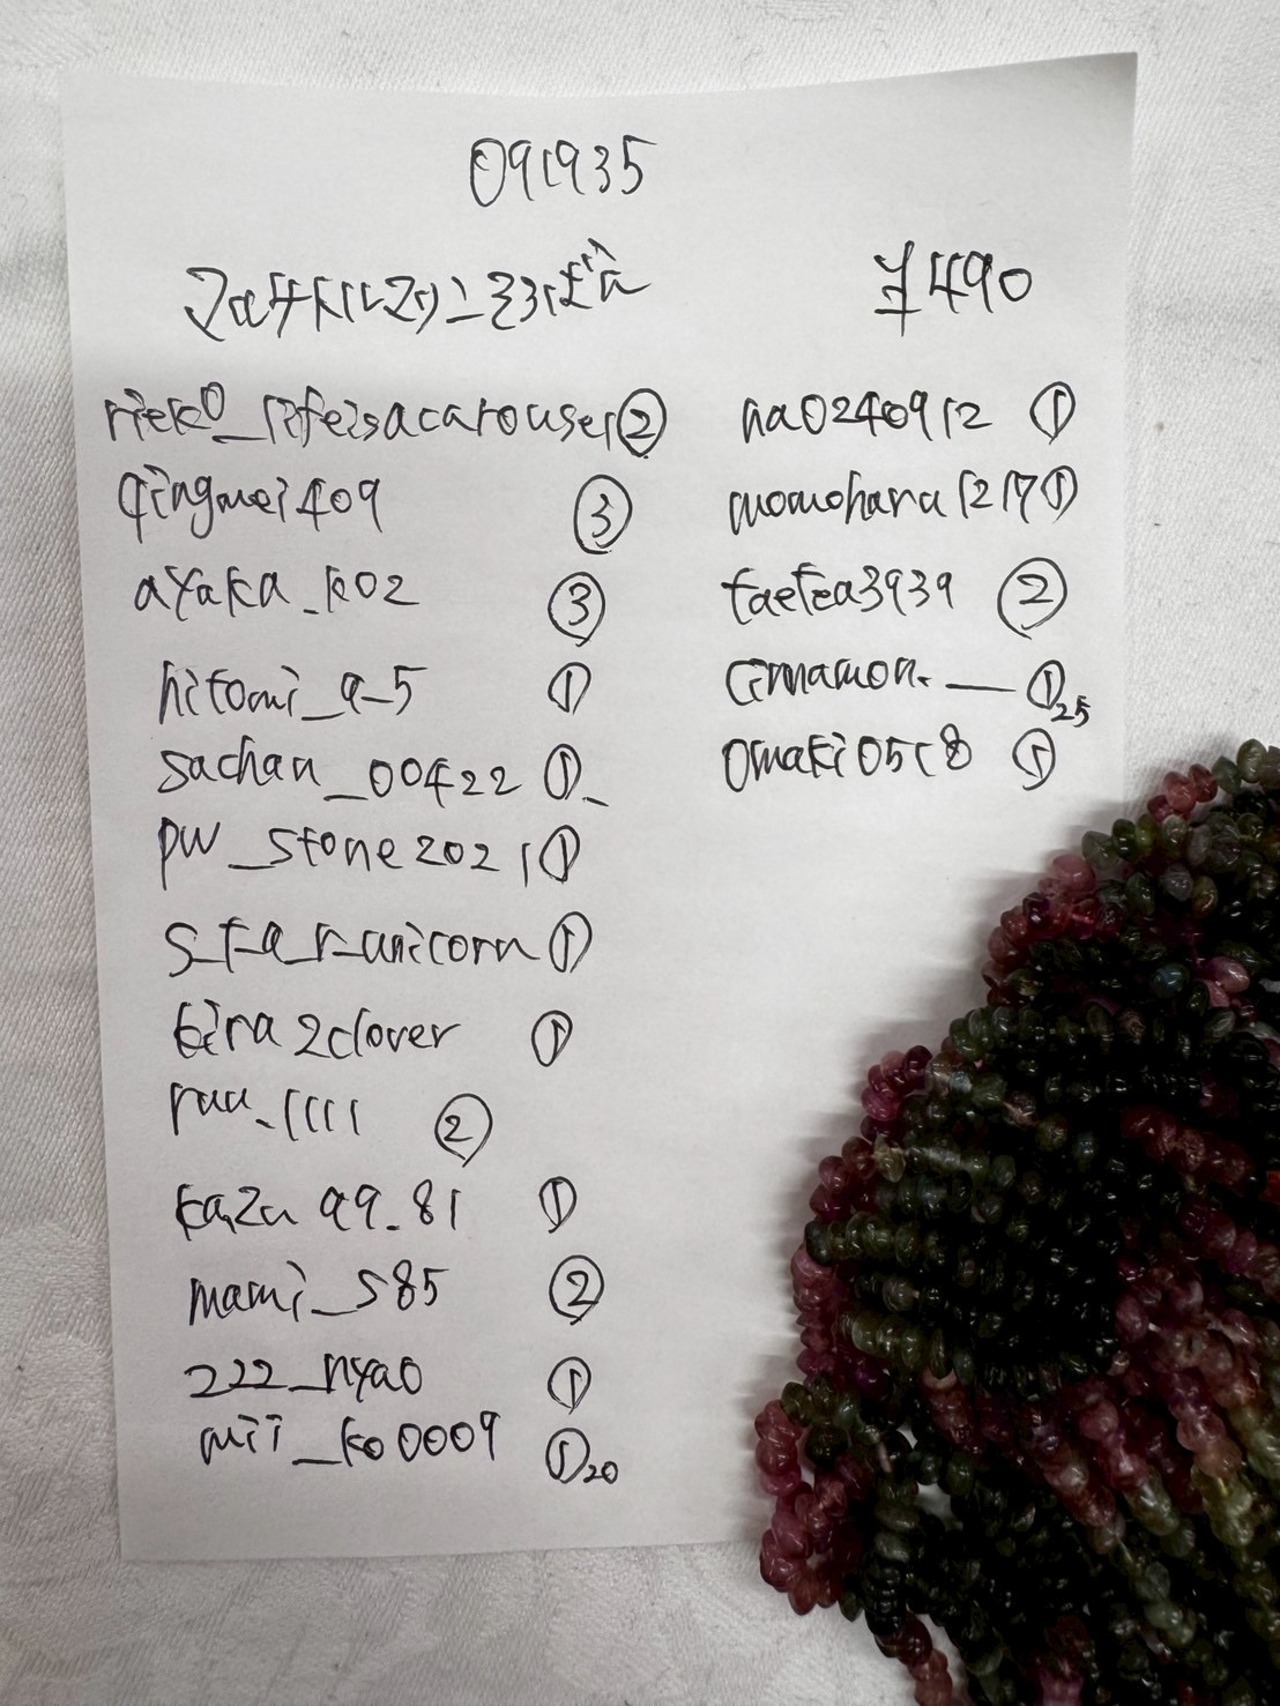 091935
¥490
rieko_lifeisacarousel ②
qingmei409 ③
ayaka_k02 ③
hitomi_a_5 ①
sachan_00422 ①
pw_stone2021 ①
s_t_a_r_unicorn ①
kira2clover ①
ruu_1111 ②
kazu99_81 ①
mami_s85 ②
222_nyao ①
mii_ko0009 ① 20
na0240912 ①
momoharu1217 ①
taetea3939 ②
cinnamon.__ ① 25
omaki0518 ①